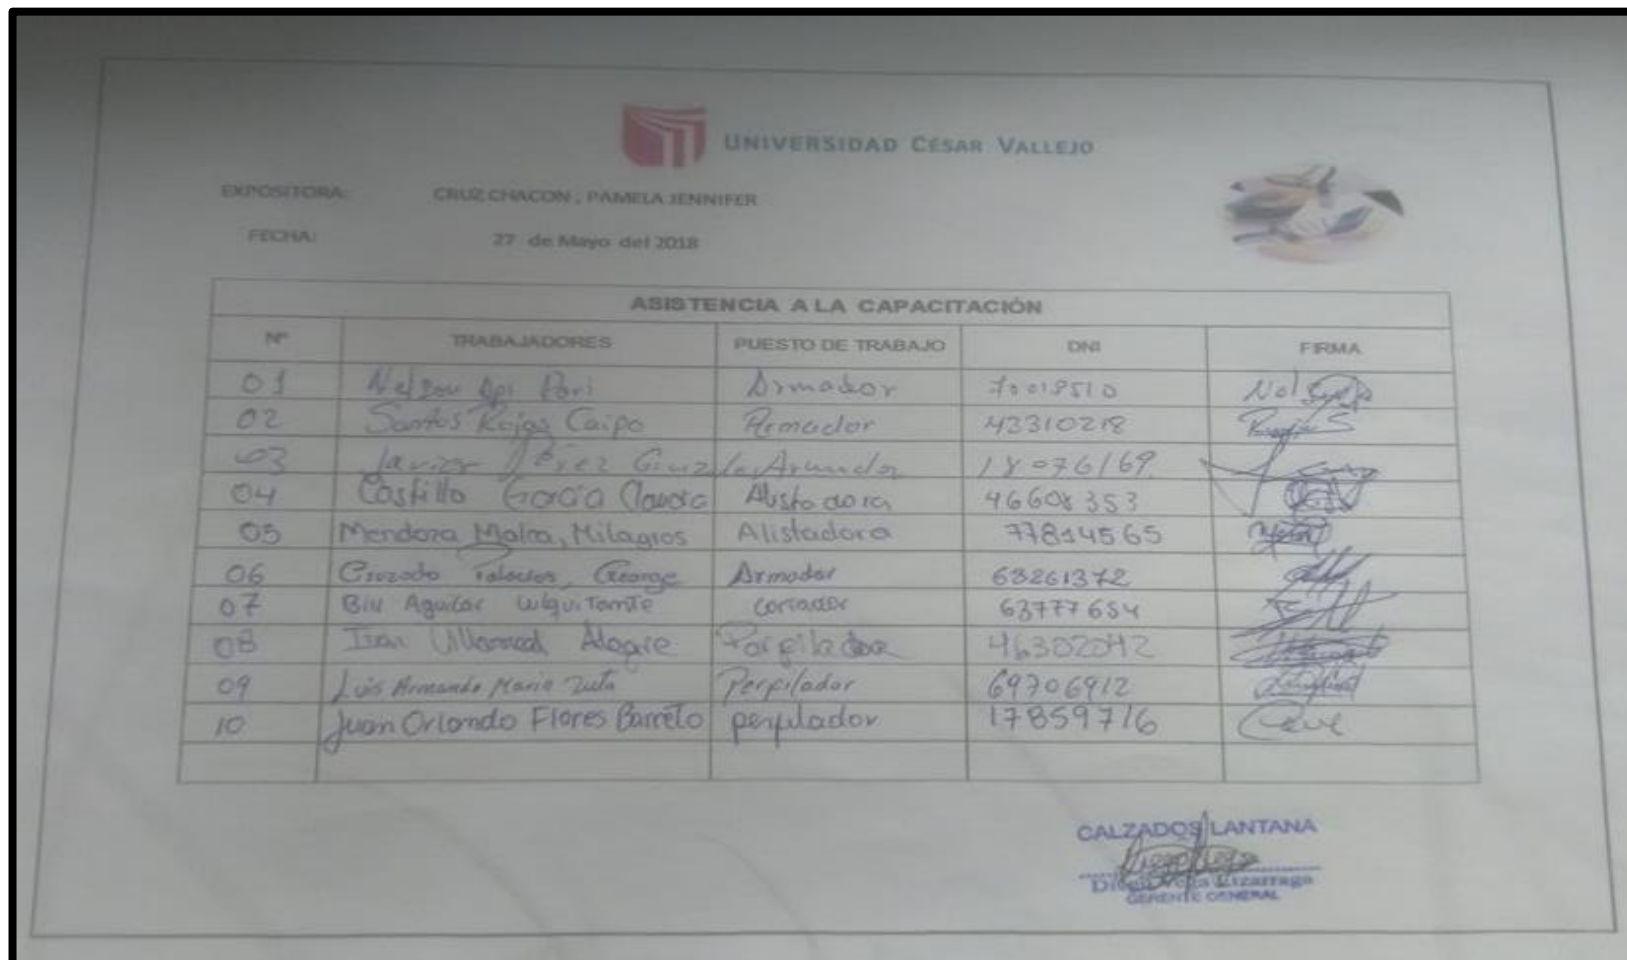 UNIVERSIDAD CÉSAR VALLEJO
EXPOSITORA: CRUZ CHACON , PAMELA JENNIFER
FECHA: 27 de Mayo del 2018
ASISTENCIA A LA CAPACITACIÓN
Nº TRABAJADORES PUESTO DE TRABAJO DNI FIRMA
01 Nelson Pari Armador 70018510
02 Santos Rojas Caipo Armador 43310218
03 Javier Pérez Armador 18076169
04 Castillo García Alistadora 46608353
05 Mendoza Malca, Milagros Alistadora 77814565
06 Cruzado Palacios, George Armador 63261372
07 Aguilar cortador 63777654
08 Villarreal Alegre 46302042
09 Luis Armando Zuta Perfilador 69706912
10 Juan Orlando Flores Barreto perfilador 17859716
CALZADOS LANTANA
Diego Lizarraga
GERENTE GENERAL